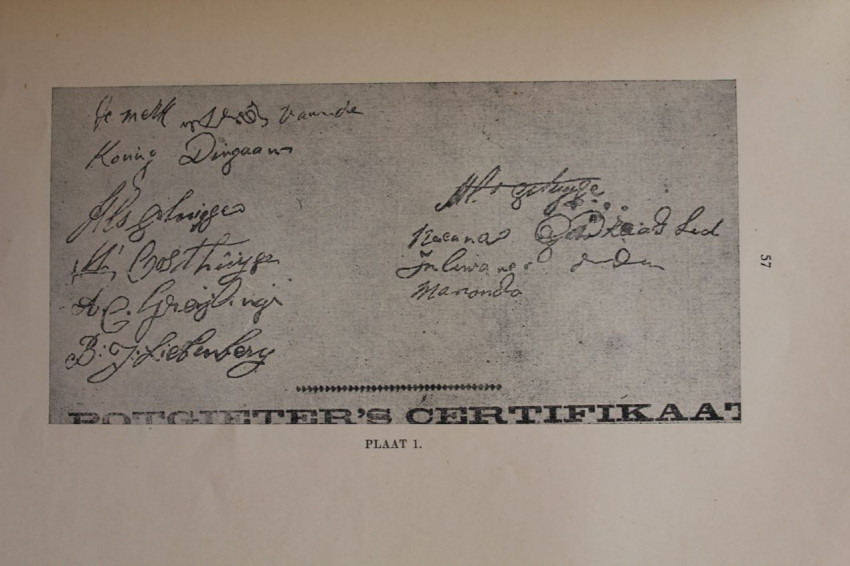 de merk van de
Koning Dingaan
Als getuigen
M. Oosthuyse
A. C. Greyling
B. J. Liebenberg
Als getuige
Moaro Groot Raads Lid
Juliwanos do do
Manondo
POTGIETER'S CERTIFIKAAT
PLAAT 1.
57